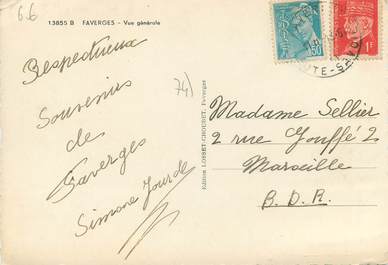 6.6
13855 B FAVERGES - Vue générale
Respectueux
Souvenirs
de
Faverges
Simone Jourde
74)
Edition LOSSET-CHOUDET, Faverges
50
1F
UTE-SAVOIE
Madame Sellier
2 rue Jouffé 2
Marseille
B.D.R.